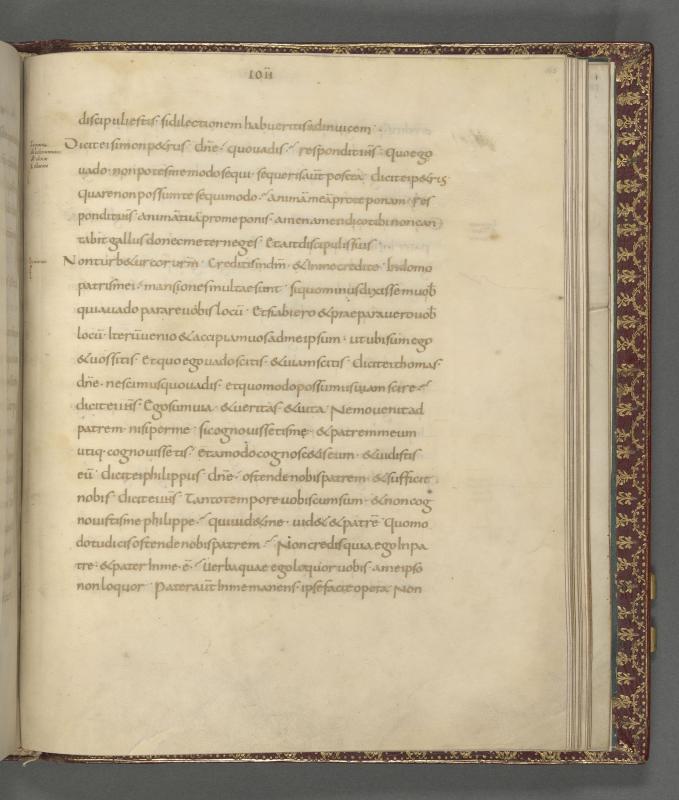 IOH̄
discipuliestis· sidilectionem habueritis adinuicem·
Diciteisimonpetrus· dn̄e· quouadis· responditih̄s· quoego
uado· nonpotesmemodosequi· sequerisaūt postea· diciteipetrus
quarenonpossumtesequimodo· animāmeāproteponam· Res
ponditih̄s· animātuāpromeponis· amenamendicotibinoncan
tabitgallusdonecmeterneges· Etaitdiscipulissuis·
Nonturbeturcor urm̄· Creditisindm̄· &inmecredite· Indomo
patrismei· mansionesmultaesunt· siquominusdixissemuob
quiauadopararеuobislocū· Etsiabiero&praeparauerouob
locū· Iterūuenio&accipiamuosadmeipsum· utubisumego
&uossitis· Etquoegouadoscitis· &uiamscitis· Diciteithomas
dn̄e· nescimusquouadis· etquomodopossumusuiamscire·
diciteiih̄s· Egosumuia· &ueritas· &uita· Nemouenitad
patrem· nisiperme· sicognouissetisme· &patremmeum
utiq· cognouissetis· etamodocognoscetiseum· &uidistis
eū· Diciteiphilippus· dn̄e· ostendenobispatrem· &sufficit
nobis· diciteiih̄s· Tantotemporeuobiscumsum· &noncog
nouistisme philippe· quiuidetme· uidet&patrē· Quomo
dotudicisostendenobispatrem· Noncredisquiaegoinpa
tre· &pater Inme·ē· Uerbaquaeegoloquoruobis· ameipso
nonloquor· Pateraūt Inmemanens· ipsefacitopera· Non